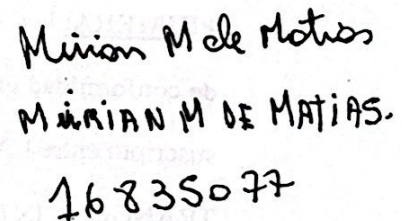 Mirian M de Matias
MiRiAN M DE MATiAS.
16835077